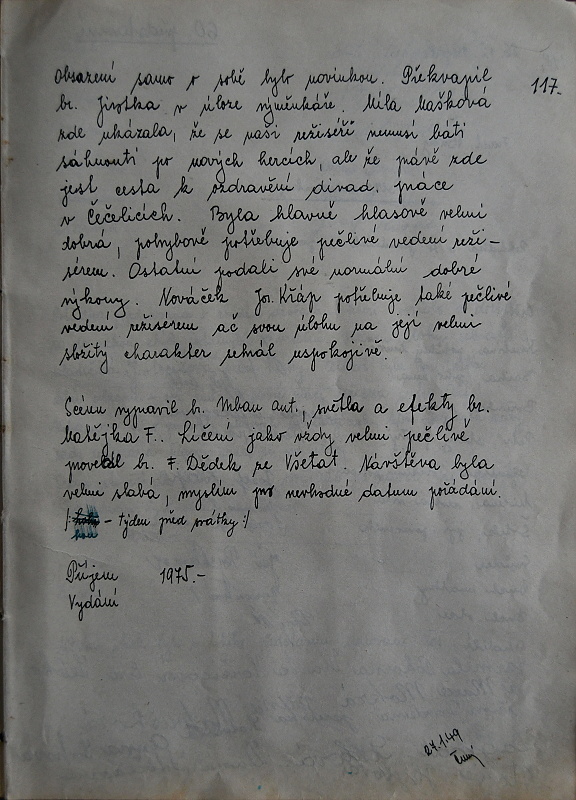 117.
Obsazení samo o sobě bylo novinkou. Překvapil
br. Jirotka v úloze výměnkáře. Míla Mašková
zde ukázala, že se naši režiséři nemusí báti
sáhnouti po nových hercích, ale že právě zde
jest cesta k ozdravění divad. práce
v Čečelicích. Byla hlavně hlasově velmi
dobrá, pohybově potřebuje pečlivé vedení reži-
sérem. Ostatní podali své normální dobré
výkony. Nováček Jos. Křáp potřebuje také pečlivé
vedení režisérem ač svou úlohu na její velmi
složitý charakter sehrál uspokojivě.
Scénu vypravil br. Urban ant., světla a efekty br.
Matějka F.. Líčení jako vždy velmi pečlivě
provedl br. F. Dědek ze Všetat. Návštěva byla
velmi slabá, myslím pro nevhodné datum pořádání.
/: - týden před svátky :/
Příjem 1975.-
Vydání
27.1.49